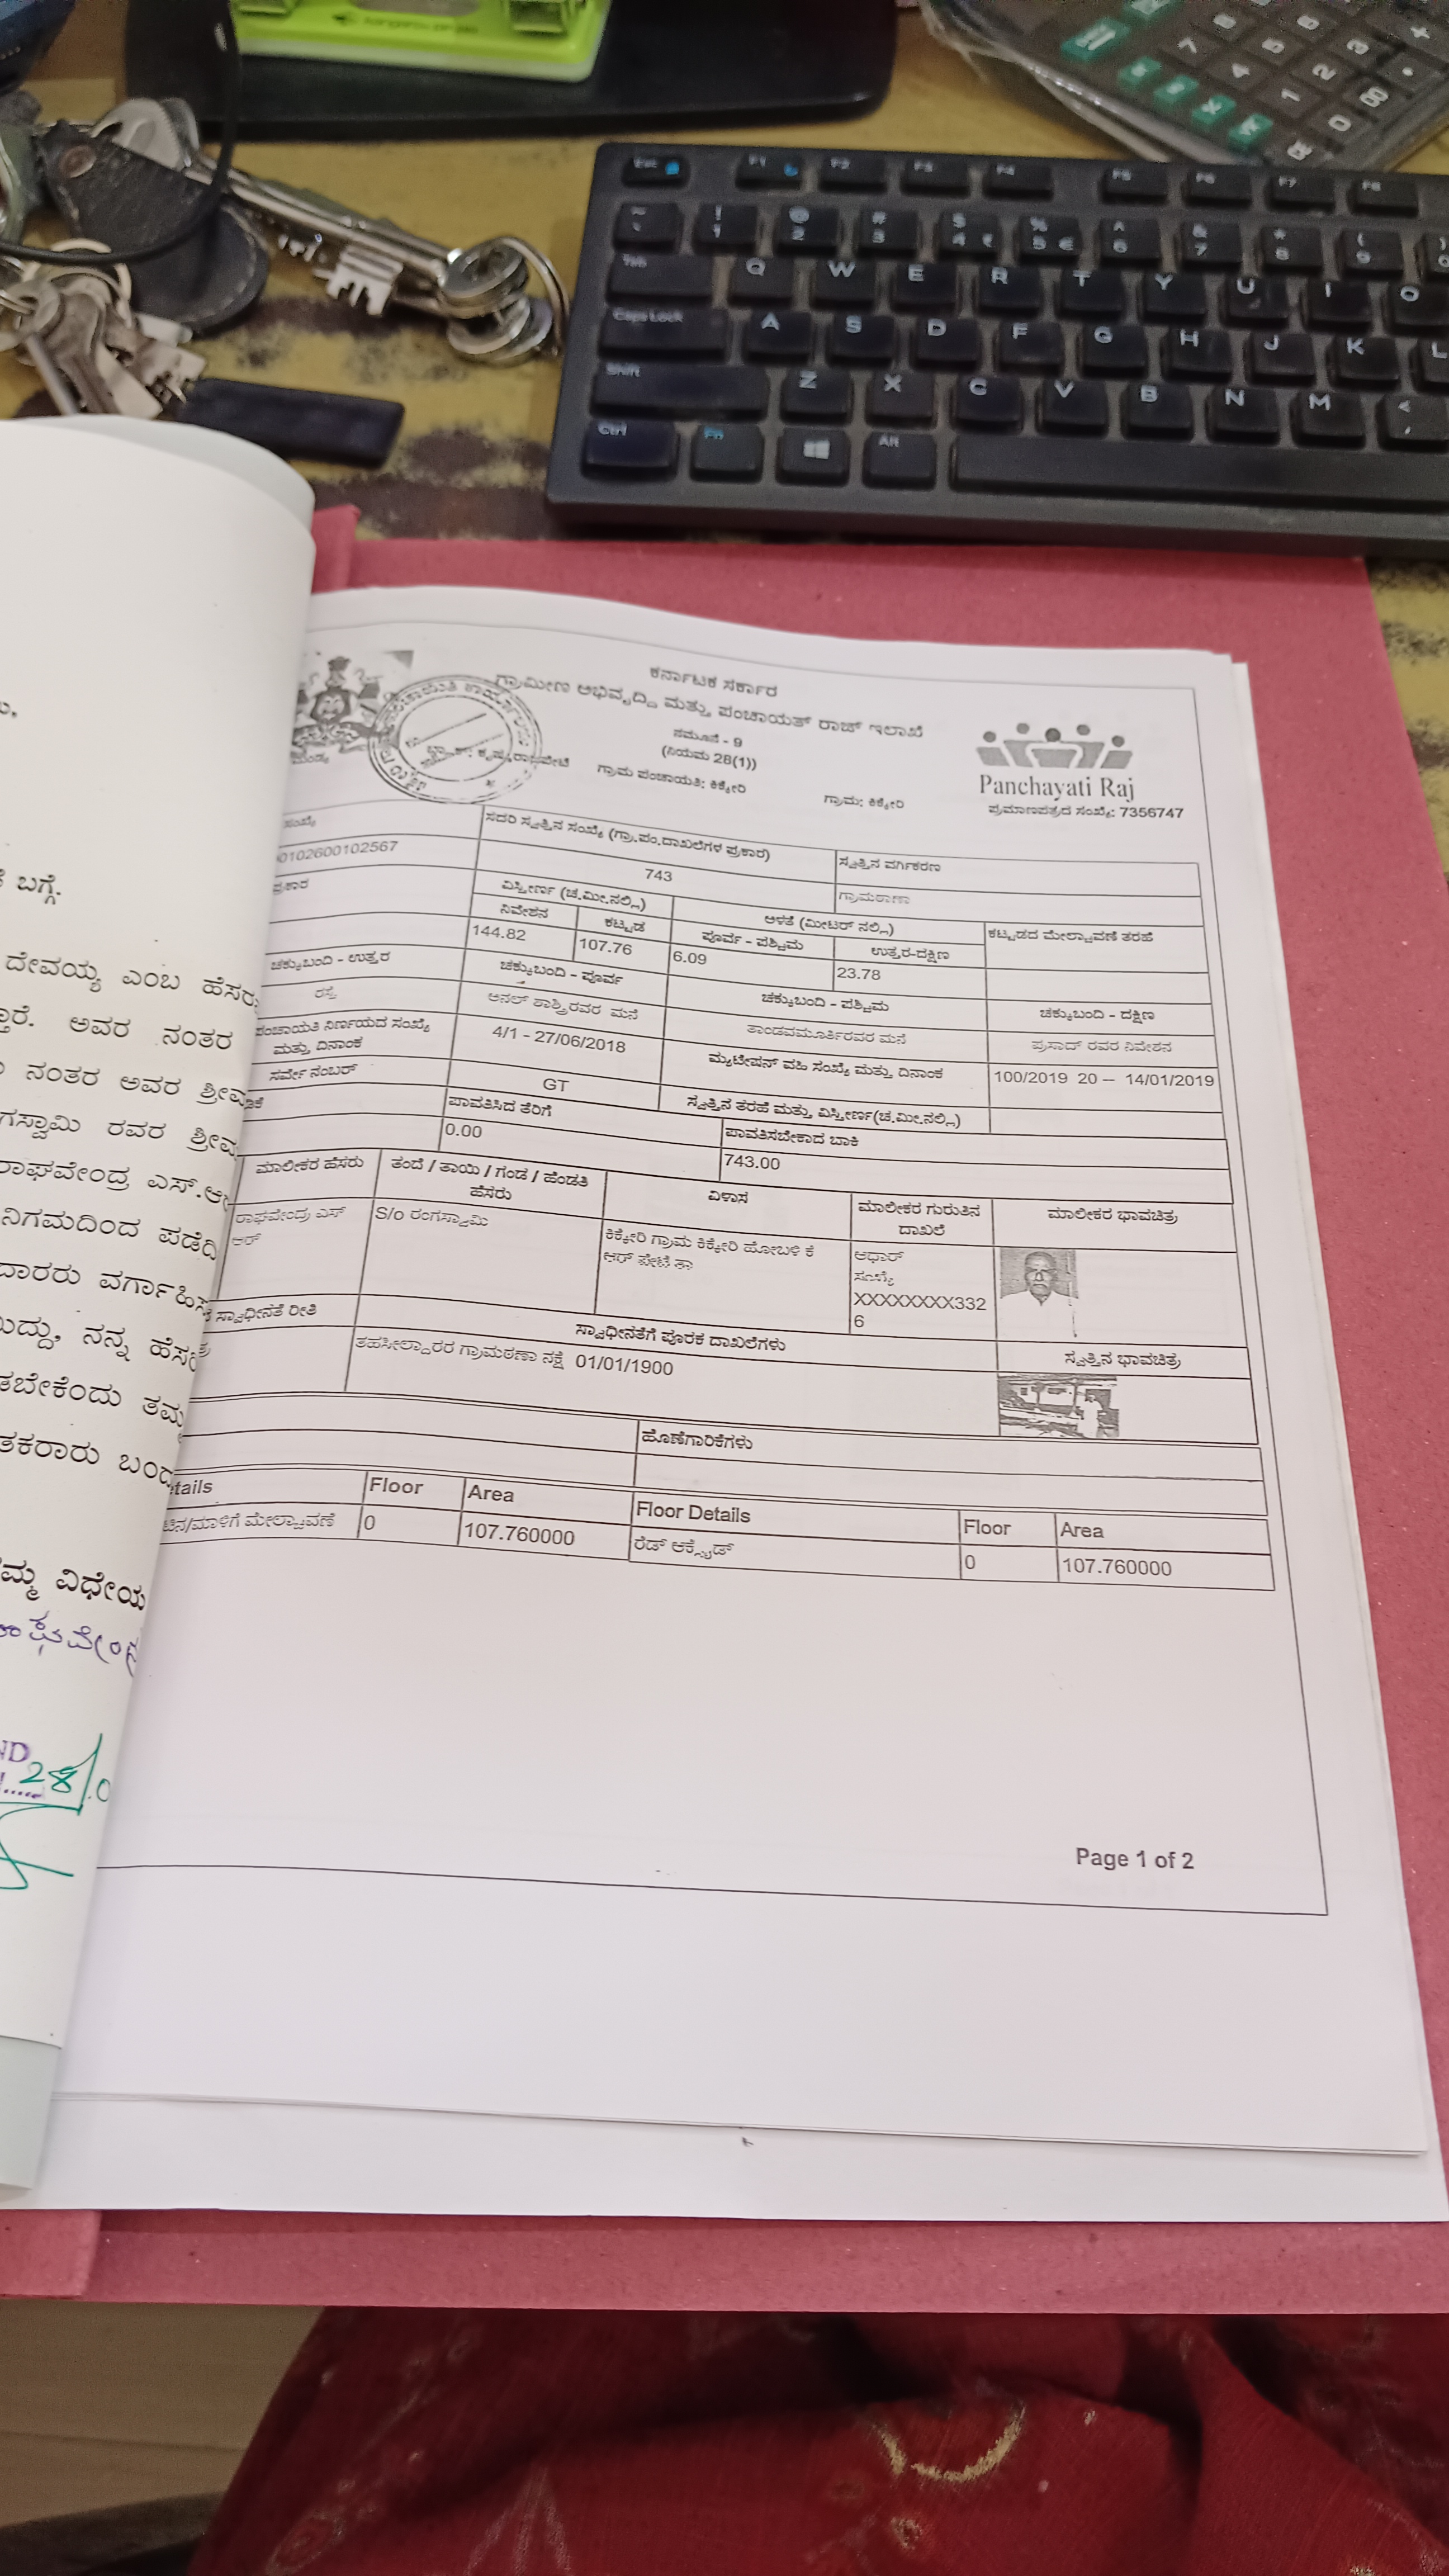 Esc F1 F2 F3 F4 F5 F6 F7 F8
Tab Q W E R T Y U I O
Caps Lock A S D F G H J K L
Shift Z X C V B N M
Ctrl Fn Alt
ಕರ್ನಾಟಕ ಸರ್ಕಾರ
ಗ್ರಾಮೀಣ ಅಭಿವೃದ್ದಿ ಮತ್ತು ಪಂಚಾಯತ್ ರಾಜ್ ಇಲಾಖೆ
ನಮೂನೆ - 9
(ನಿಯಮ 28(1))
ಕೃಷ್ಣರಾಜಪೇಟೆ ಗ್ರಾಮ ಪಂಚಾಯತಿ: ಕಿಕ್ಕೇರಿ ಗ್ರಾಮ: ಕಿಕ್ಕೇರಿ
Panchayati Raj
ಪ್ರಮಾಣಪತ್ರದ ಸಂಖ್ಯೆ: 7356747
ಸಂಖ್ಯೆ ಸದರಿ ಸ್ವತ್ತಿನ ಸಂಖ್ಯೆ (ಗ್ರಾ.ಪಂ.ದಾಖಲೆಗಳ ಪ್ರಕಾರ) ಸ್ವತ್ತಿನ ವರ್ಗಿಕರಣ
0102600102567 743 ಗ್ರಾಮಠಾಣಾ
ಪ್ರಕಾರ ವಿಸ್ತೀರ್ಣ (ಚ.ಮೀ.ನಲ್ಲಿ) ಅಳತೆ (ಮೀಟರ್ ನಲ್ಲಿ) ಕಟ್ಟಡದ ಮೇಲ್ಚಾವಣೆ ತರಹೆ
ನಿವೇಶನ ಕಟ್ಟಡ ಪೂರ್ವ - ಪಶ್ಚಿಮ ಉತ್ತರ-ದಕ್ಷಿಣ
144.82 107.76 6.09 23.78
ಚಕ್ಕುಬಂದಿ - ಉತ್ತರ ಚಕ್ಕುಬಂದಿ - ಪೂರ್ವ ಚಕ್ಕುಬಂದಿ - ಪಶ್ಚಿಮ ಚಕ್ಕುಬಂದಿ - ದಕ್ಷಿಣ
ರಸ್ತೆ ಅನಿಲ್ ಶಾಸ್ತ್ರಿರವರ ಮನೆ ತಾಂಡವಮೂರ್ತಿರವರ ಮನೆ ಪ್ರಸಾದ್ ರವರ ನಿವೇಶನ
ಪಂಚಾಯತಿ ನಿರ್ಣಯದ ಸಂಖ್ಯೆ ಮತ್ತು ದಿನಾಂಕ 4/1 - 27/06/2018 ಮ್ಯುಟೇಷನ್ ವಹಿ ಸಂಖ್ಯೆ ಮತ್ತು ದಿನಾಂಕ 100/2019 20 – 14/01/2019
ಸರ್ವೇ ನಂಬರ್ GT ಸ್ವತ್ತಿನ ತರಹೆ ಮತ್ತು ವಿಸ್ತೀರ್ಣ(ಚ.ಮೀ.ನಲ್ಲಿ)
ಪಾವತಿಸಿದ ತೆರಿಗೆ ಪಾವತಿಸಬೇಕಾದ ಬಾಕಿ
0.00 743.00
ಮಾಲೀಕರ ಹೆಸರು ತಂದೆ / ತಾಯಿ / ಗಂಡ / ಹೆಂಡತಿ ಹೆಸರು ವಿಳಾಸ ಮಾಲೀಕರ ಗುರುತಿನ ದಾಖಲೆ ಮಾಲೀಕರ ಭಾವಚಿತ್ರ
ರಾಘವೇಂದ್ರ ಎಸ್ ಆರ್ S/o ರಂಗಸ್ವಾಮಿ ಕಿಕ್ಕೇರಿ ಗ್ರಾಮ ಕಿಕ್ಕೇರಿ ಹೋಬಳಿ ಕೆ ಆರ್ ಪೇಟೆ ತಾ ಆಧಾರ್ ಸಂಖ್ಯೆ XXXXXXXX332 6
ಸ್ವಾಧೀನತೆ ರೀತಿ ಸ್ವಾಧೀನತೆಗೆ ಪೂರಕ ದಾಖಲೆಗಳು ಸ್ವತ್ತಿನ ಭಾವಚಿತ್ರ
ತಹಸೀಲ್ದಾರರ ಗ್ರಾಮಠಣಾ ನಕ್ಷೆ 01/01/1900
ಹೊಣೆಗಾರಿಕೆಗಳು
tails Floor Area Floor Details Floor Area
ಮಾಳಿಗೆ ಮೇಲ್ಚಾವಣೆ 0 107.760000 ರೆಡ್ ಆಕ್ಸೈಡ್ 0 107.760000
Page 1 of 2
ಬಗ್ಗೆ.
ದೇವಯ್ಯ ಎಂಬ ಹೆಸರು
ಅವರ ನಂತರ
ನಂತರ ಅವರ ಶ್ರೀ
ಗಸ್ವಾಮಿ ರವರ ಶ್ರೀ
ರಾಘವೇಂದ್ರ ಎಸ್.ಆ
ನಿಗಮದಿಂದ ಪಡೆದಿ
ದಾರರು ವರ್ಗಾಹಿಸ
ನನ್ನ ಹೆಸ
ತಬೇಕೆಂದು ತಮ್ಮ
ತಕರಾರು ಬಂದ
ವಿಧೇಯ
28/0